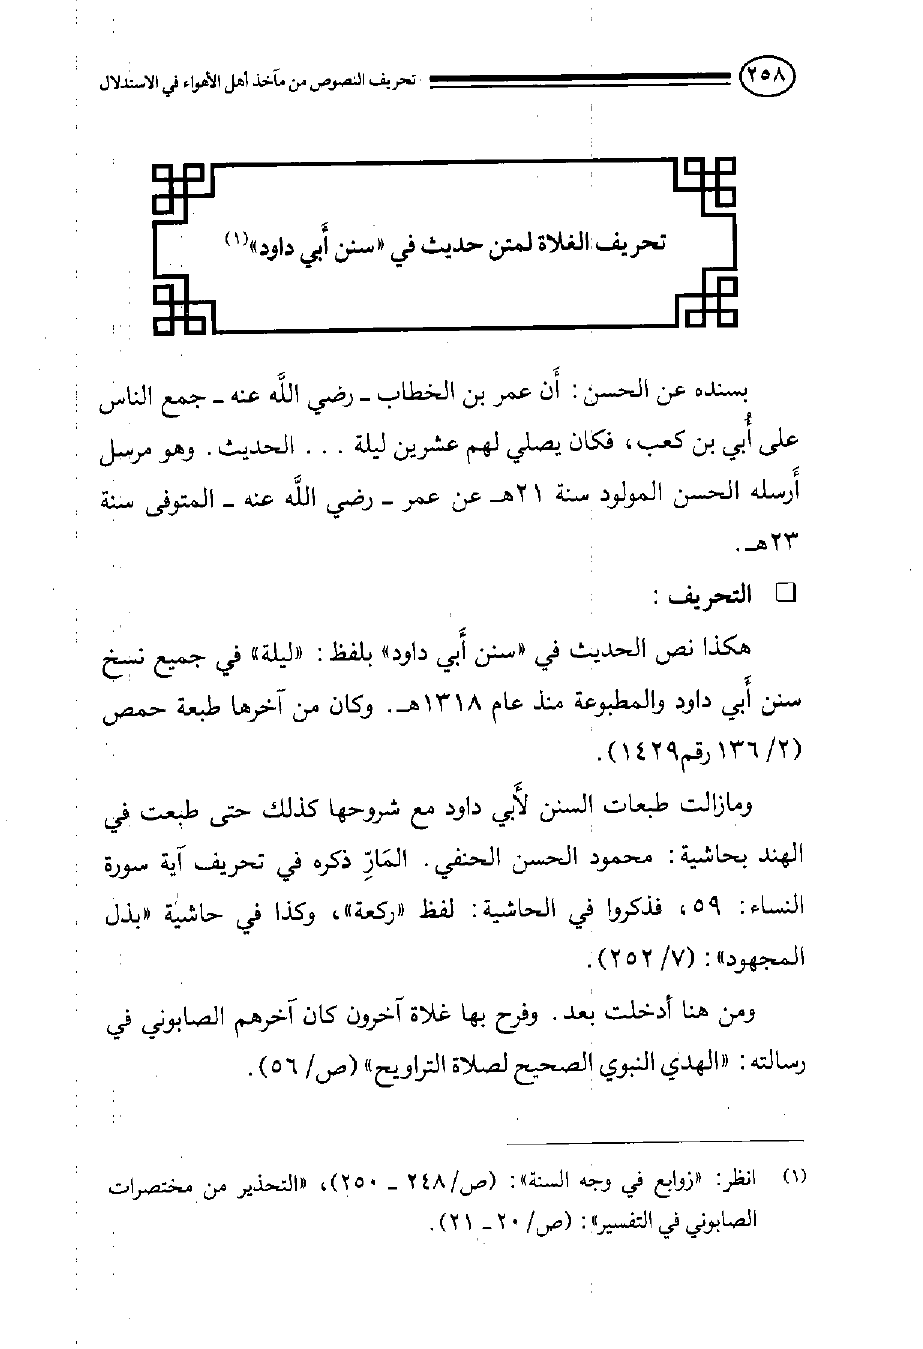 ٢٥٨ تحريف النصوص من مآخذ أهل الأهواء في الاستدلال
تحريف الغلاة لمتن حديث في «سنن أبي داود»(١)
بسنده عن الحسن: أن عمر بن الخطاب ـ رضي اللَّه عنه ـ جمع الناس
على أُبي بن كعب، فكان يصلي لهم عشرين ليلة ... الحديث. وهو مرسل
أَرسله الحسن المولود سنة ٢١هـ عن عمر ـ رضي اللَّه عنه ـ المتوفى سنة
٢٣هـ.
□ التحريف:
هكذا نص الحديث في «سنن أَبي داود» بلفظ: «ليلة» في جميع نسخ
سنن أَبي داود والمطبوعة منذ عام ١٣١٨هـ. وكان من آخرها طبعة حمص
(٢/ ١٣٦ رقم١٤٢٩).
ومازالت طبعات السنن لأَبي داود مع شروحها كذلك حتى طبعت في
الهند بحاشية: محمود الحسن الحنفي. المَارِّ ذكره في تحريف آية سورة
النساء: ٥٩، فذكروا في الحاشية: لفظ «ركعة»، وكذا في حاشية «بذل
المجهود»: (٧/ ٢٥٢).
ومن هنا أدخلت بعد. وفرح بها غلاة آخرون كان آخرهم الصابوني في
رسالته: «الهدي النبوي الصحيح لصلاة التراويح» (ص/ ٥٦).
(١) انظر: «زوابع في وجه السنة»: (ص/ ٢٤٨ ـ ٢٥٠)، «التحذير من مختصرات
الصابوني في التفسير»: (ص/ ٢٠ ـ ٢١).